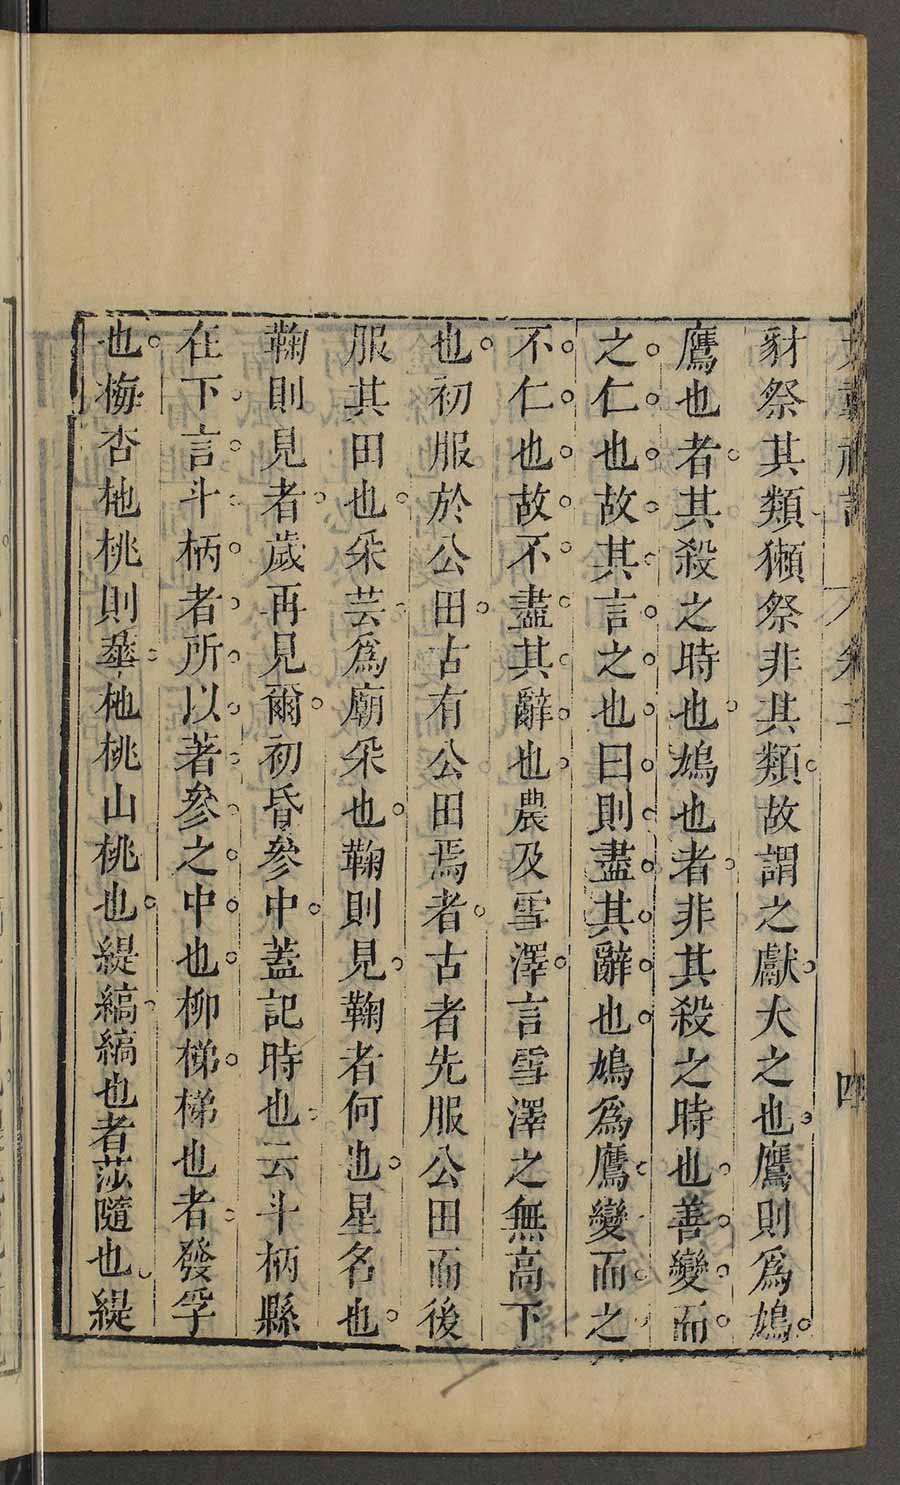 豺祭其類獺祭非其類故謂之獻大之也鷹則爲鳩
鷹也者其殺之時也鳩也者非其殺之時也善變而
之仁也故其言之也曰則盡其辭也鳩爲鷹變而之
不仁也故不盡其辭也農及雪澤言雪澤之無高下
也初服於公田古有公田焉者古者先服公田而後
服其田也采芸爲廟采也鞠則見鞠者何也星名也
鞠則見者歲再見爾初昏參中蓋記時也云斗柄縣
在下言斗柄者所以著參之中也柳稊稊也者發孚
也梅杏杝桃則華杝桃山桃也緹縞縞也者莎隨也緹
四